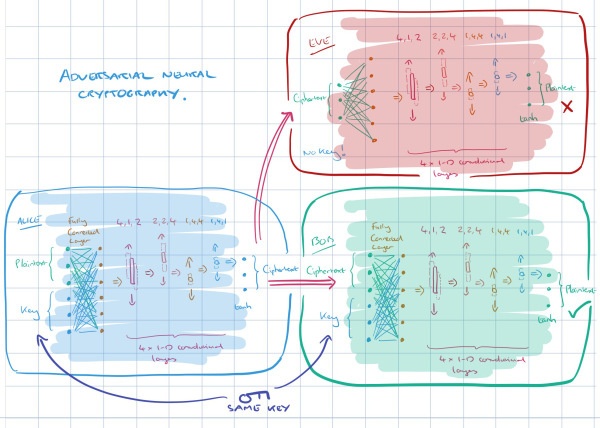 ADVERSARIAL NEURAL
CRYPTOGRAPHY.
EVE
4,1,2 2,2,4 1,4,4 1,4,1
Ciphertext
Plaintext
tanh
No Key!
4 x 1-D convolutional
layers
ALICE
Fully
Connected
Layer
4,1,2 2,2,4 1,4,4 1,4,1
Plaintext
Key
Ciphertext
tanh
4 x 1-D convolutional
layers
BOB
Fully
Connected
Layer
4,1,2 2,2,4 1,4,4 1,4,1
Ciphertext
Key
Plaintext
tanh
4 x 1-D convolutional
layers
SAME KEY